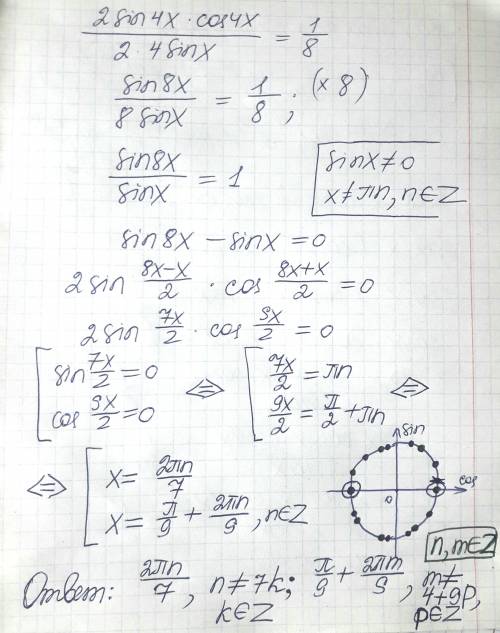 2sin4x · cos4x / 2 · 4sinx = 1/8
sin8x / 8sinx = 1/8 ; (× 8)
sin8x / sinx = 1
sinx ≠ 0
x ≠ πn, n∈Z
sin8x − sinx = 0
2sin 8x−x/2 · cos 8x+x/2 = 0
2sin 7x/2 · cos 9x/2 = 0
[ sin 7x/2 = 0 ⇔ [ 7x/2 = πn ⇔
cos 9x/2 = 0 9x/2 = π/2 + πn
sin
cos
0
⇔ [ x = 2πn/7
x = π/9 + 2πn/9, n∈Z
n, m∈Z
Ответ: 2πn/7, n≠7k; π/9 + 2πm/9, m≠
k∈Z 4+9p,
p∈Z